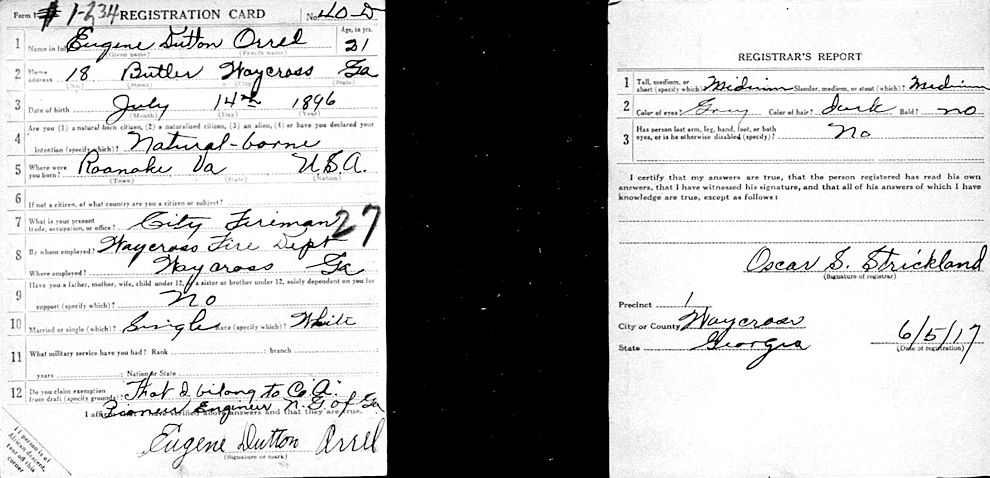 Form 1 #1-234 REGISTRATION CARD No. 40-D
1 Name in full Eugene Dutton Orrel Age, in yrs. 21
(Given name) (Family name)
2 Home address 18 Butler Waycross Ga
(No.) (Street) (State)
3 Date of birth July 14th 1896
(Month) (Day) (Year)
4 Are you (1) a natural-born citizen, (2) a naturalized citizen, (3) an alien, (4) or have you declared your
intention (specify which)? Natural-borne
5 Where were you born? Roanoke Va U.S.A.
(Town) (State) (Nation)
6 If not a citizen, of what country are you a citizen or subject?
7 What is your present trade, occupation, or office? City Fireman 27
8 By whom employed? Waycross Fire Dept
Where employed? Waycross Ga
9 Have you a father, mother, wife, child under 12, or a sister or brother under 12, solely dependent on you for
support (specify which)? No
10 Married or single (which)? Single Race (specify which)? White
11 What military service have you had? Rank ; branch
years ; Nation or State
12 Do you claim exemption from draft (specify grounds)? That I belong to Co A.
Pioneer Engineer N.G of Ga
I affirm that I have verified above answers and that they are true.
Eugene Dutton Orrel
(Signature or mark)
If person is of
African descent,
tear off this
corner
REGISTRAR'S REPORT
1 Tall, medium, or short (specify which)? Medium Slender, medium, or stout (which)? Medium
2 Color of eyes? Gray Color of hair? Dark Bald? no
3 Has person lost arm, leg, hand, foot, or both
eyes, or is he otherwise disabled (specify)? No
I certify that my answers are true, that the person registered has read his own
answers, that I have witnessed his signature, and that all of his answers of which I have
knowledge are true, except as follows:
Oscar S. Strickland
(Signature of registrar)
Precinct 1
City or County Waycross
State Georgia 6/5/17
(Date of registration)